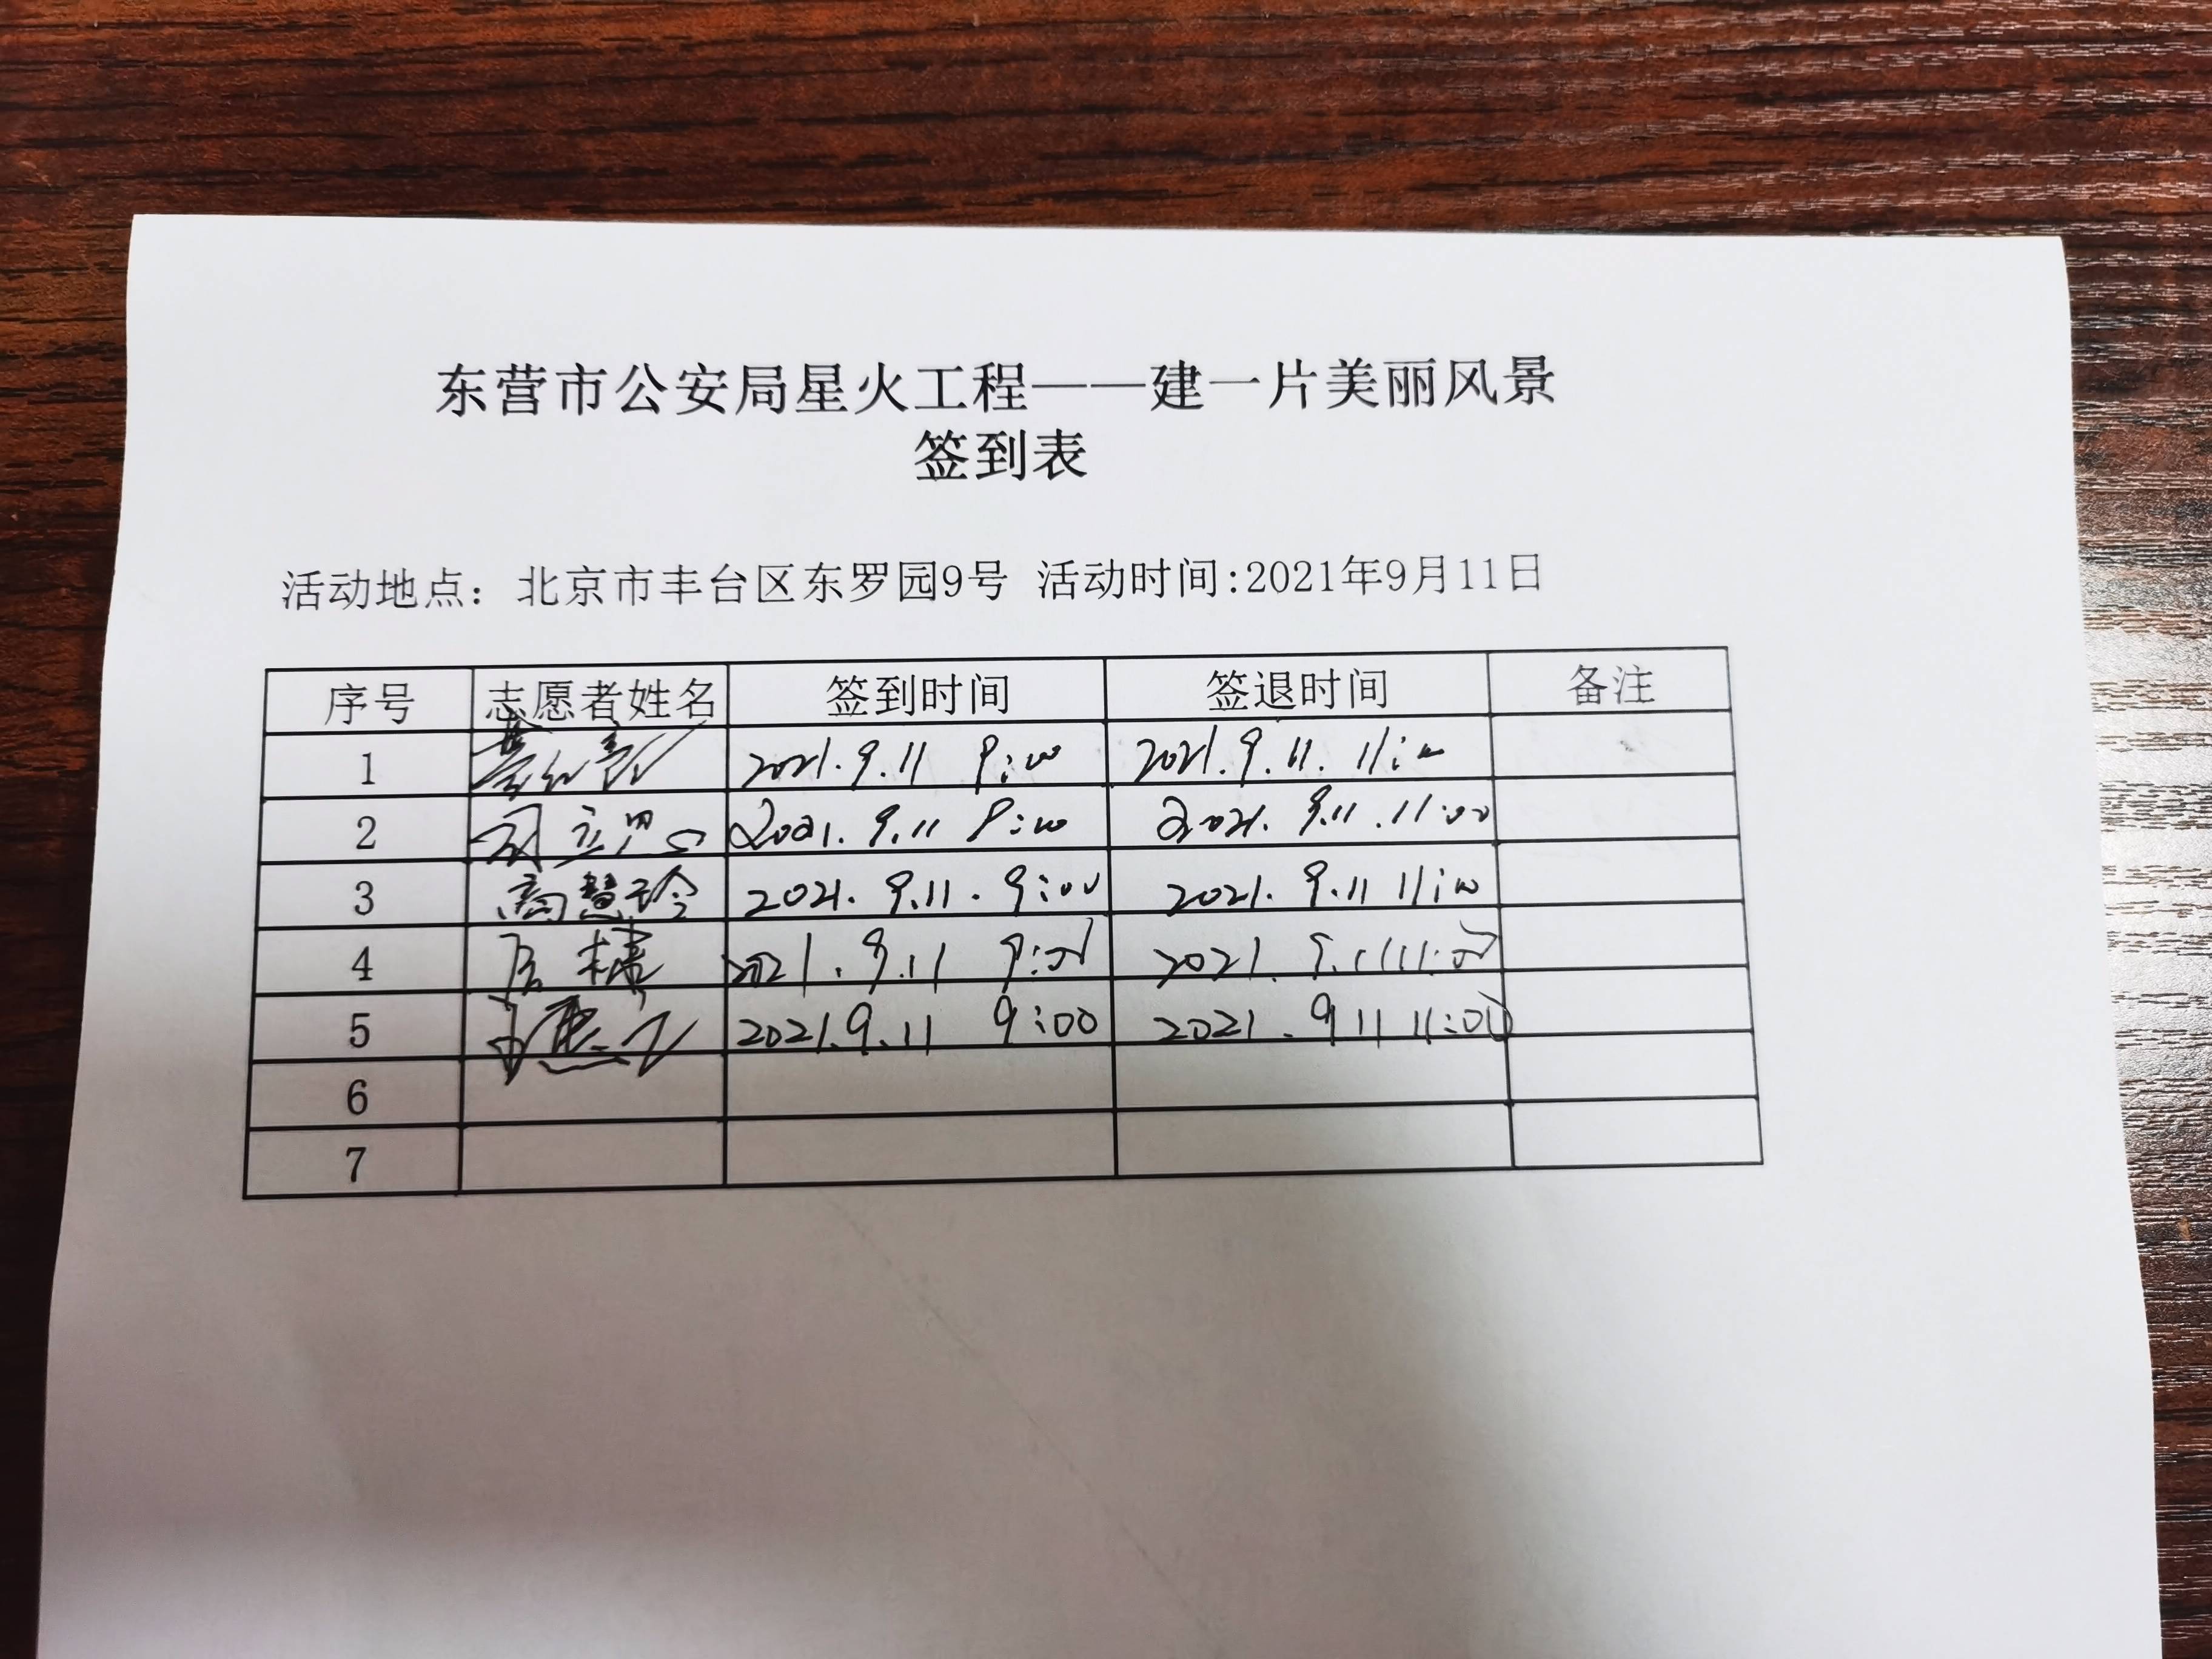 东营市公安局星火工程——建一片美丽风景
签到表
活动地点：北京市丰台区东罗园9号 活动时间:2021年9月11日
序号 志愿者姓名 签到时间 签退时间 备注
1 2021.9.11 9:00 2021.9.11. 11:00
2 2021.9.11 9:00 2021.9.11.11:00
3 高慧玲 2021.9.11.9:00 2021.9.11 11:00
4 2021.9.11 9:00 2021.9.11 11:00
5 2021.9.11 9:00 2021.9 11 11:00
6
7